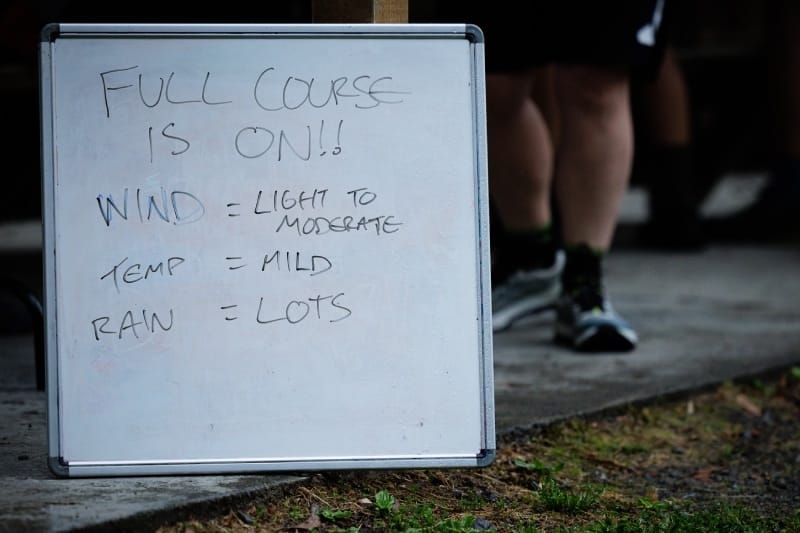 FULL COURSE
IS ON!!
WIND = LIGHT TO
MODERATE
TEMP = MILD
RAIN = LOTS